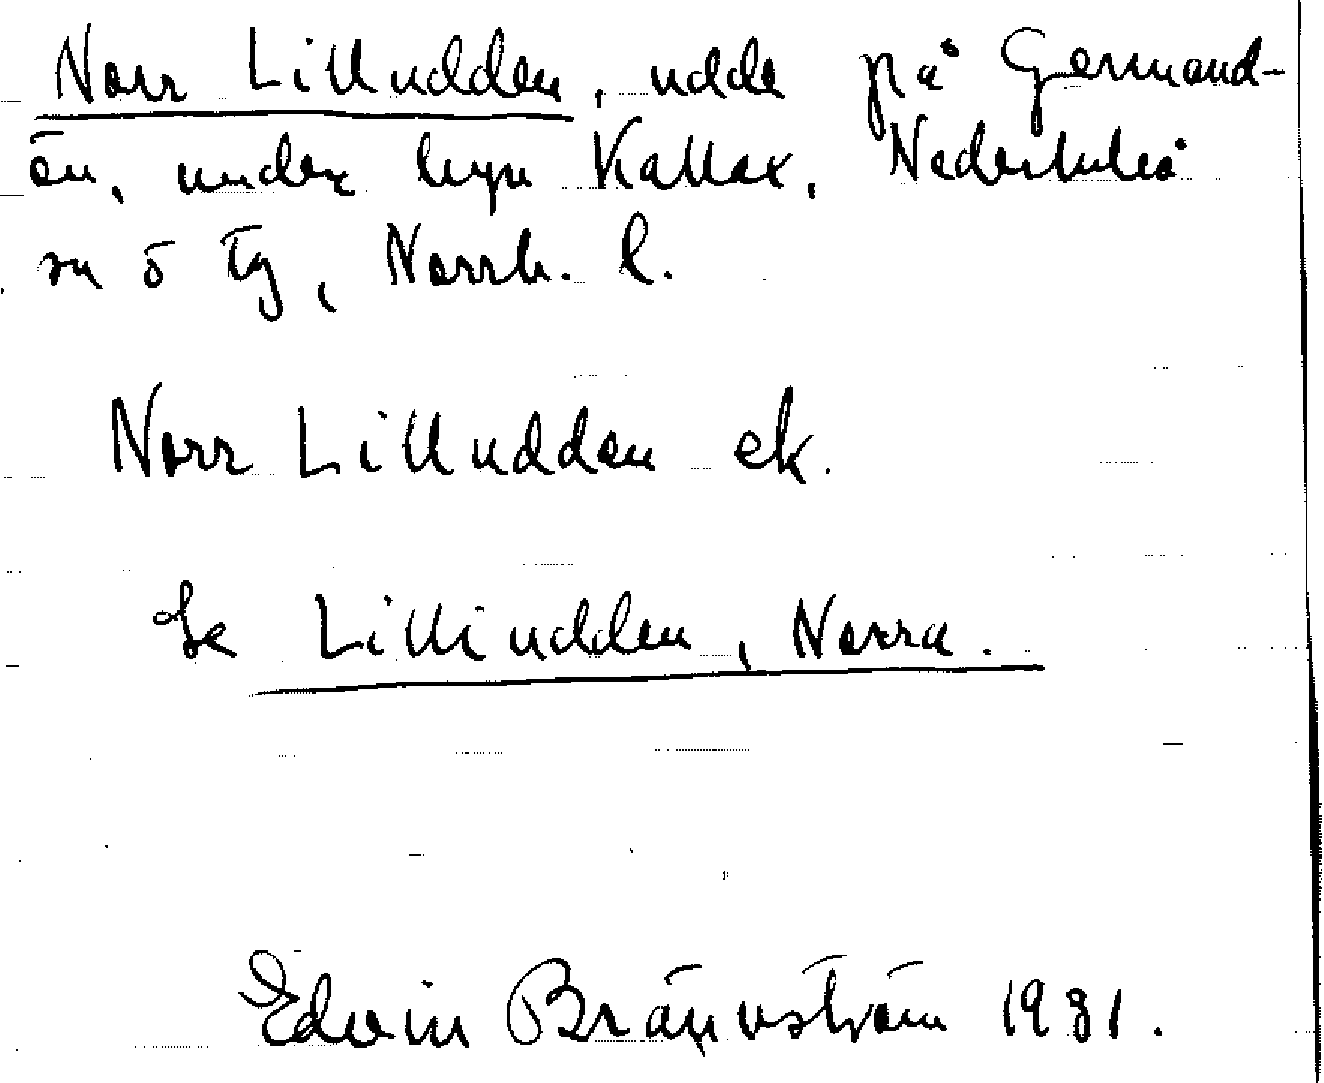 Norr Lilludden, udde på Germand-
ön, under byn Kallax, Nederluleå
sn o tg, Norrb. l.
Norr Lilludden ek.
Se Lilludden, Norra.
Edvin Brännström 1931.